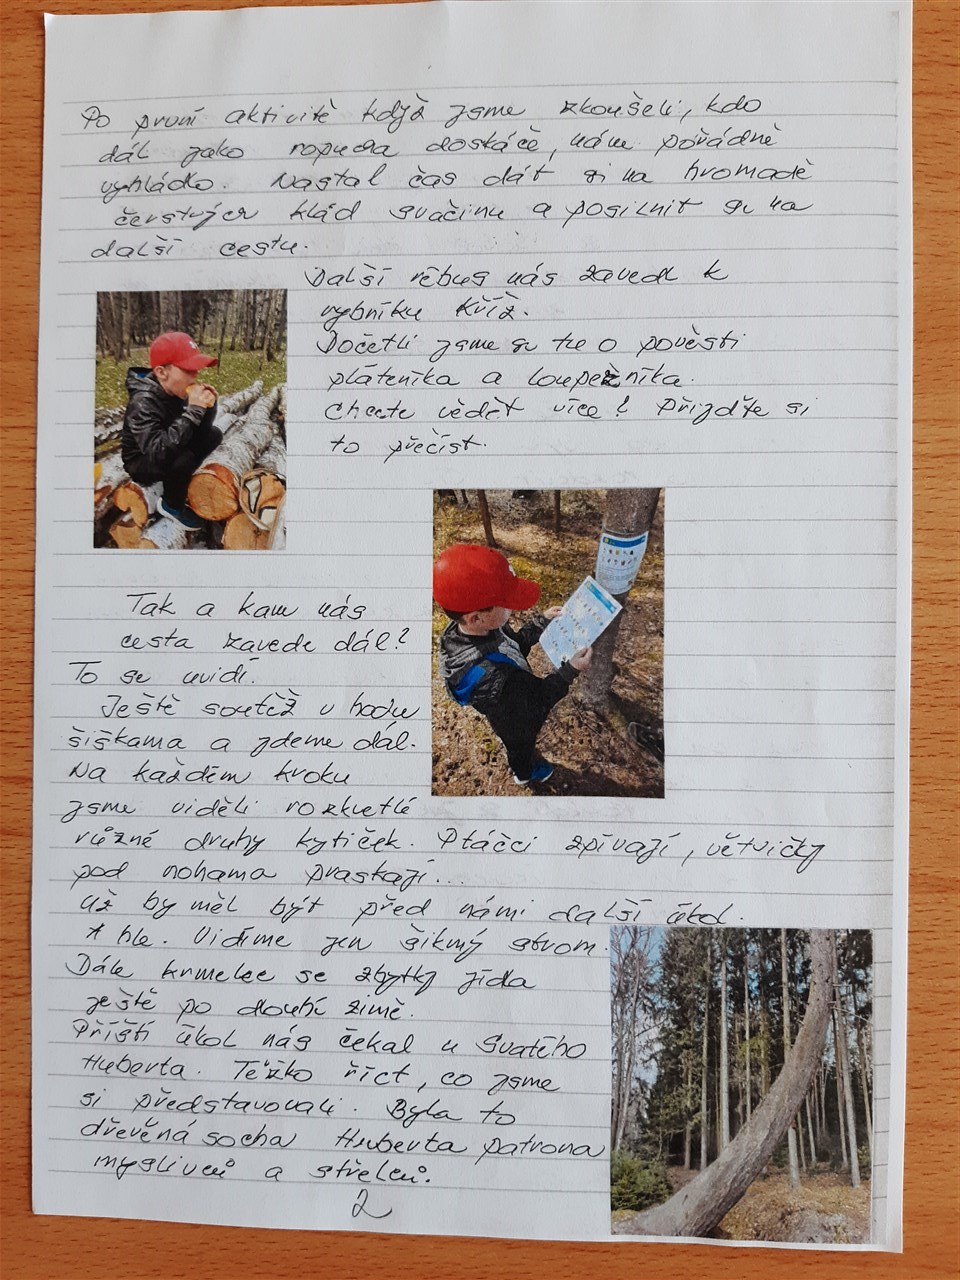 Po první aktivitě když jsme zkoušeli, kdo
dál jako ropucha doskáče, nám pořádně
vyhládlo. Nastal čas dát si na hromadě
čerstvých klád svačinu a posilnit se na
další cestu.
Další rébus nás zavedl k
rybníku Kříž.
Dočetli jsme se tu o pověsti
pláteníka a loupežníka.
Chcete vědět více? Přijďte si
to přečíst.
Tak a kam nás
cesta zavede dál?
To se uvidí.
Ještě soutěž v hodu
šiškama a jdeme dál.
Na každém kroku
jsme viděli rozkvetlé
různé druhy kytiček. Ptáčci zpívají, větvičky
pod nohama praskají...
Už by měl být před námi další úkol.
A hle. Vidíme jen šikmý strom.
Dále krmelec se zbytky jídla
ještě po dlouhé zimě.
Příští úkol nás čekal u Svatého
Huberta. Těžko říct, co jsme
si představovali. Byla to
dřevěná socha Huberta patrona
myslivců a střelců.
2